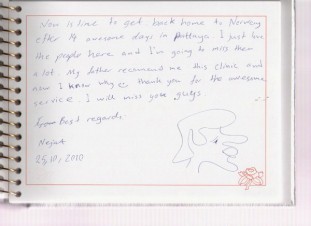 Now is time to get back home to Norway
after 14 awesome days in Pattaya. I just love
the people here and I'm going to miss them
a lot. My father recommend me this clinic and
now I know why thank you for the awesome
service. I will miss you guys.
Best regards.
25.10, 2010